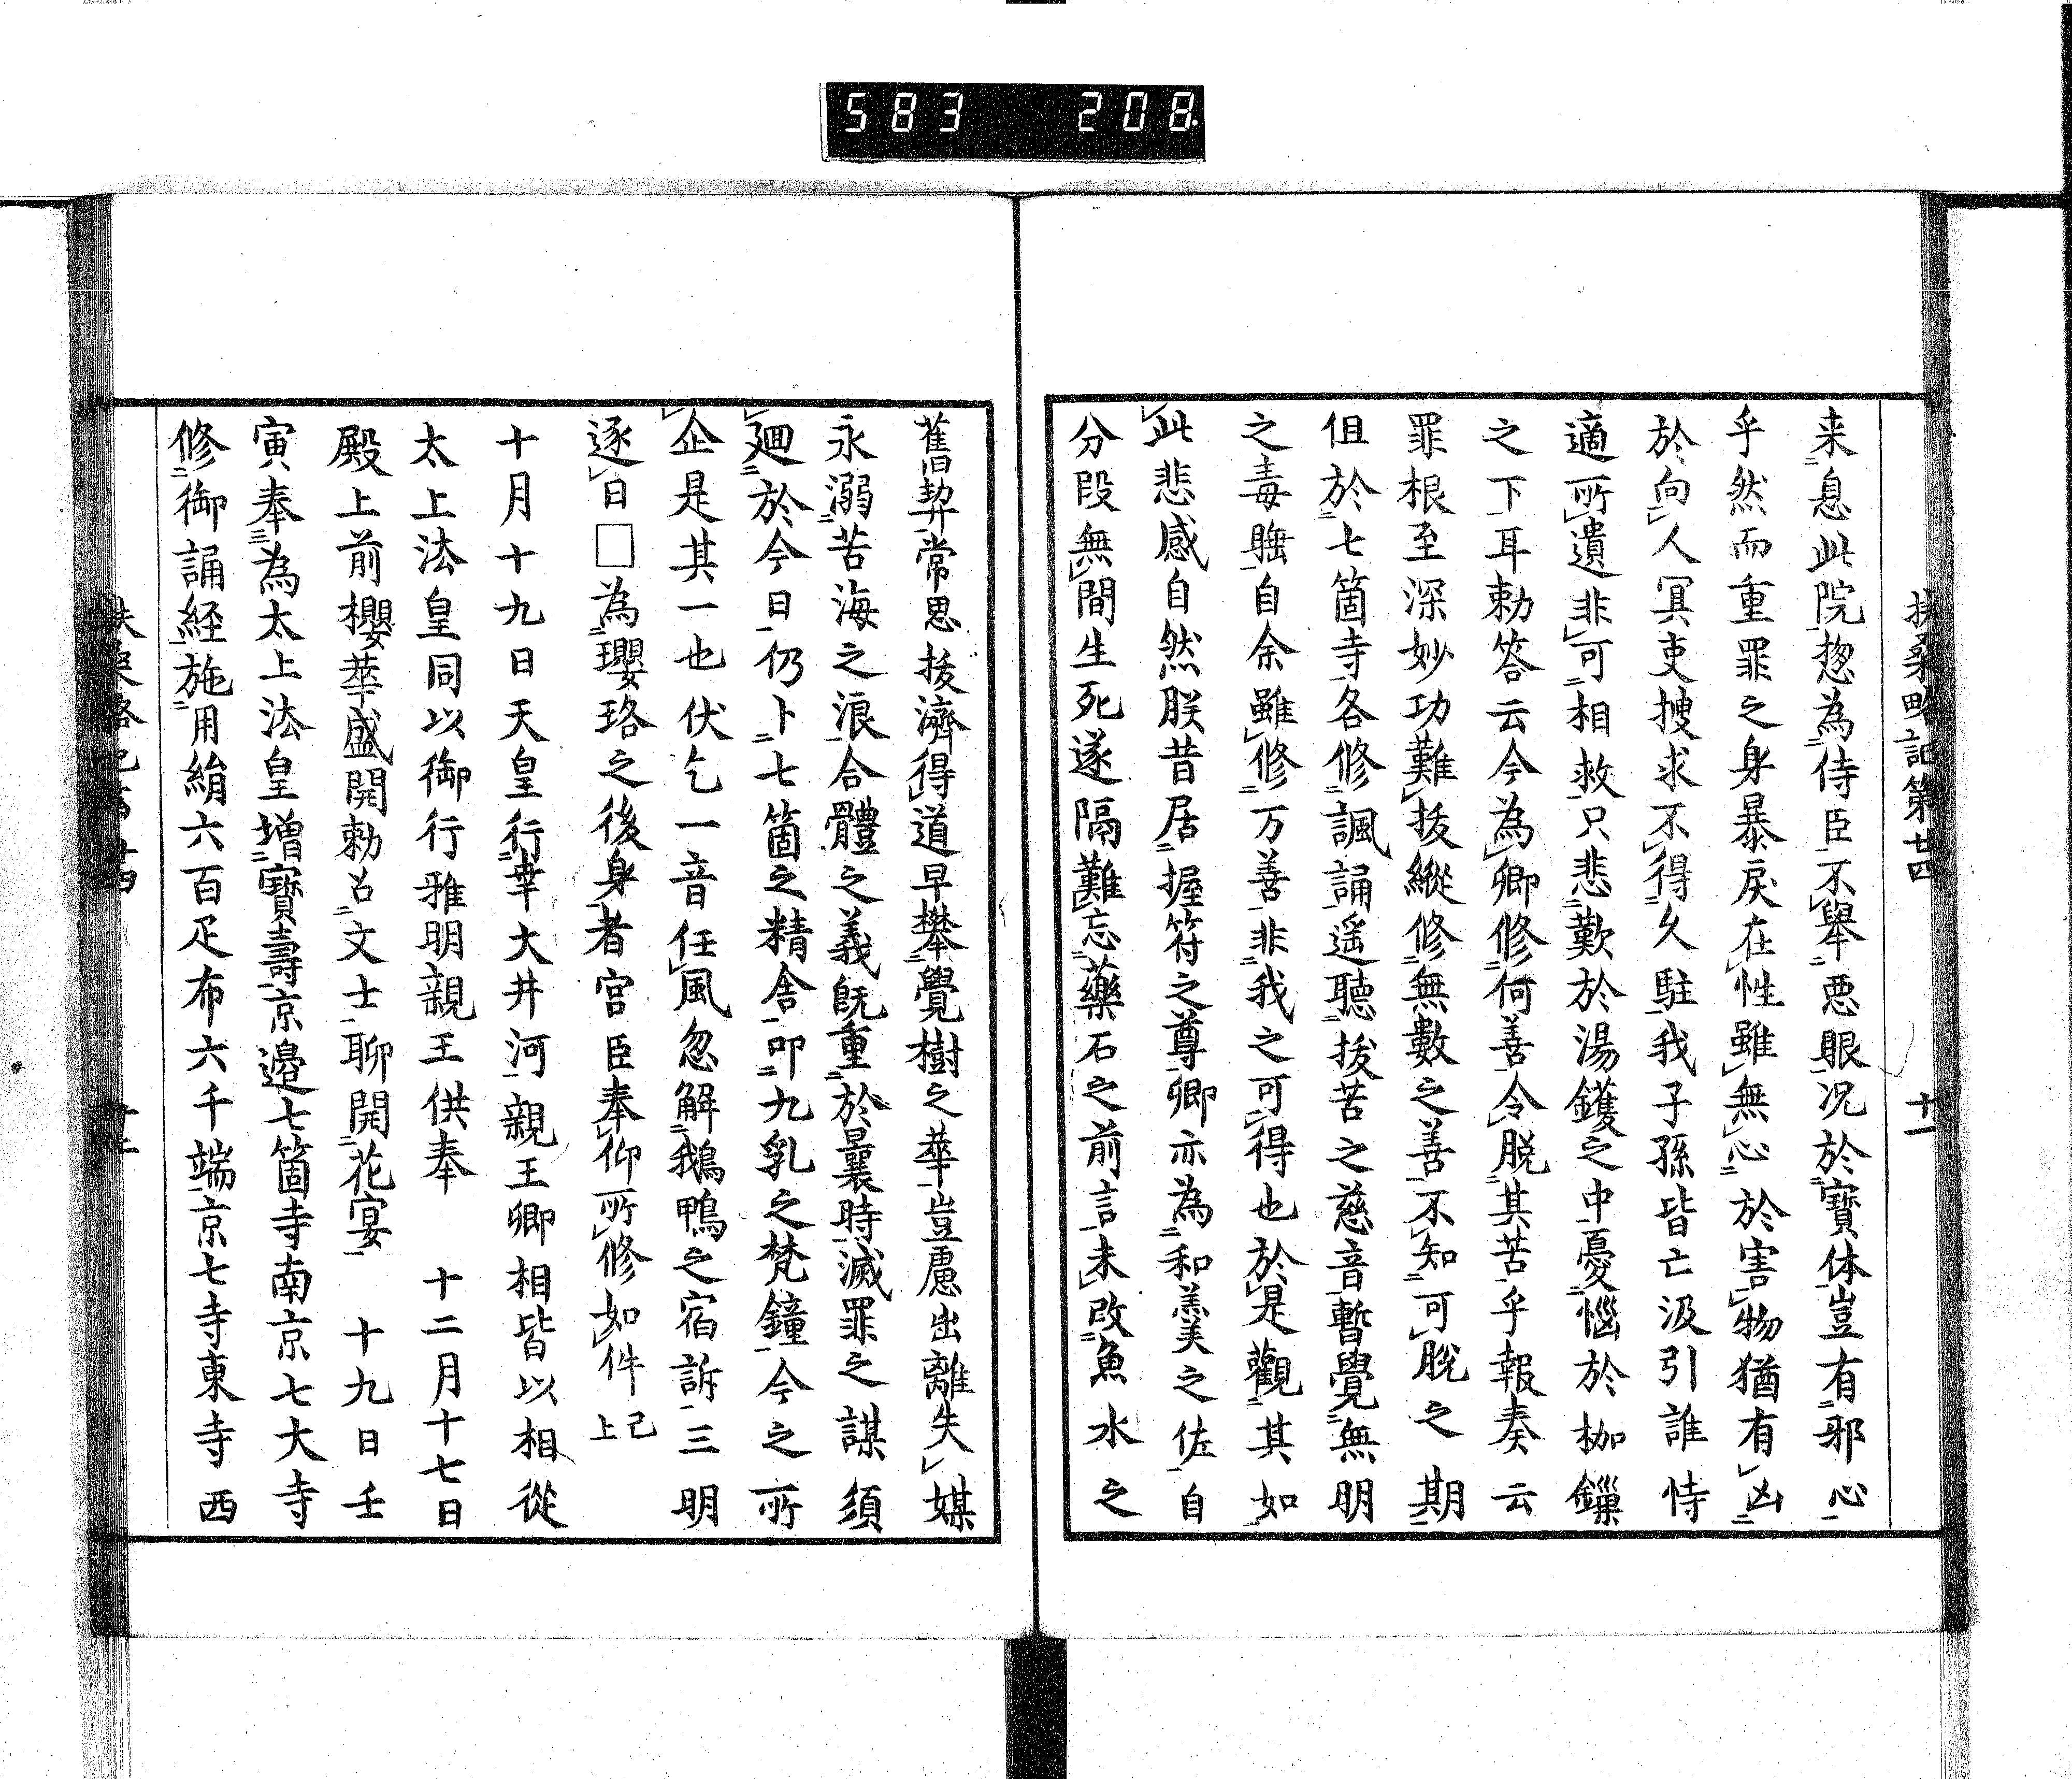 583 208
扶桑略記第廿四 十一
来息此院惣為侍臣不舉悪眼况於寶体豈有邪心
乎然而重罪之身暴戻在性雖無心於害物猶有凶
於向人冥吏捜求不得久駐我子孫皆亡汲引誰恃
適所遺非可相救只悲歎於湯鑊之中憂惱於枷鏁
之下耳勅答云今為卿修何善令脱其苦乎報奏云
罪根至深妙功難抜縱修無數之善不知可脱之期
但於七箇寺各修諷誦遥聴抜苦之慈音暫覺無明
之毒睡自余雖修万善非我之可得也於是觀其如
此悲感自然朕昔居握符之尊卿亦為和羹之佐自
分段無間生死遂隔難忘藥石之前言未改魚水之
舊契常思抜濟得道早攀覺樹之華豈慮出離失媒
永溺苦海之浪合體之義既重於曩時滅罪之謀須
廻於今日仍卜七箇之精舎叩九乳之梵鐘今之所
企是其一也伏乞一音任風忽解鵝鴨之宿訴三明
逐日□為瓔珞之後身者宮臣奉仰所修如件已上
十月十九日天皇行幸大井河親王卿相皆以相從
太上法皇同以御行雅明親王供奉 十二月十七日
殿上前櫻華盛開勅召文士聊開花宴 十九日壬
寅奉為太上法皇増寶壽京邊七箇寺南京七大寺
修御誦経施用絹六百疋布六千端京七寺東寺西